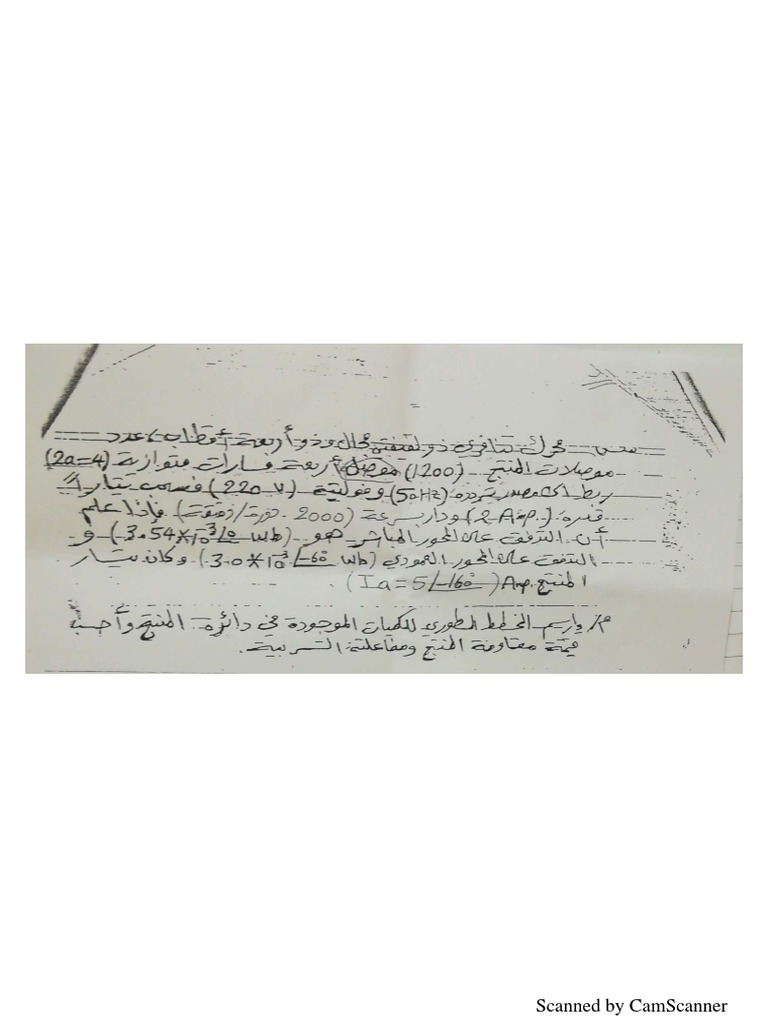 محرك تنافري ذو لفيفتي مجال وذو أربعة أقطاب، عدد
موصلات المنتج (1200) موصل أربعة مسارات متوازية (2a=4)
ربط الى مصدر تردده (50Hz) وفولتية (220 V) فسحب تياراً
قدره (2 Amp.) ودار بسرعة (2000 دورة/دقيقة) فإذا علم
أن التدفق على المحور المباشر هو (3.54*10⁻³∠0 wb) و
التدفق على المحور العمودي (3.0*10⁻³∠-60 wb) وكان تيار
المنتج (Ia = 5∠-160° Amp.)
م/ إرسم المخطط الطوري للكميات الموجودة في دائرة المنتج وأحسب
قيمة مقاومة المنتج ومفاعلته التسربية.
Scanned by CamScanner